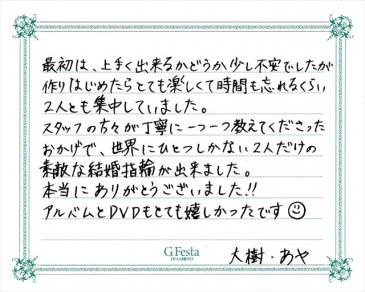 最初は、上手く出来るかどうか少し不安でしたが
作りはじめたらとても楽しくて時間も忘れるくらい
2人とも集中していました。
スタッフの方々が丁寧に一つ一つ教えてくださった
おかげで、世界にひとつしかない2人だけの
素敵な結婚指輪が出来ました。
本当にありがとうございました!!
アルバムとDVDもとても嬉しかったです
G.Festa
DIAMOND
大樹・あや